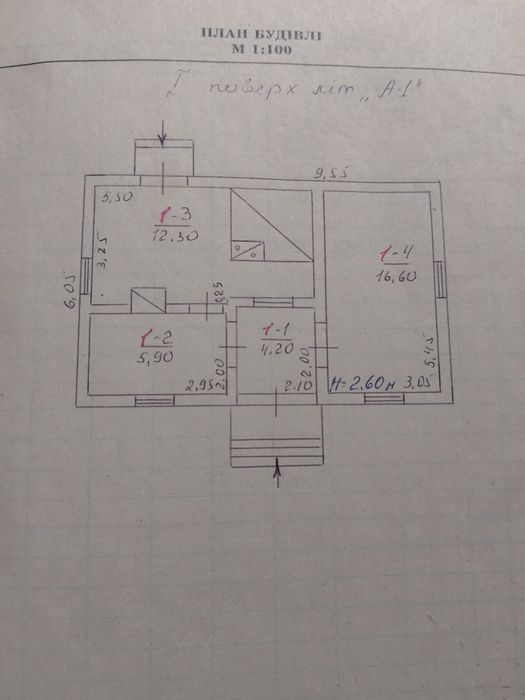 ПЛАН БУДІВЛІ
М 1:100
I поверх літ „А-1"
9,55
5,50
1-3
12.30
3,25
1-4
16,60
6,05
1-1
4.20
1-2
5,90
5,45
2.00
2,95
2,00
2.10
H=2.60 м
3,05